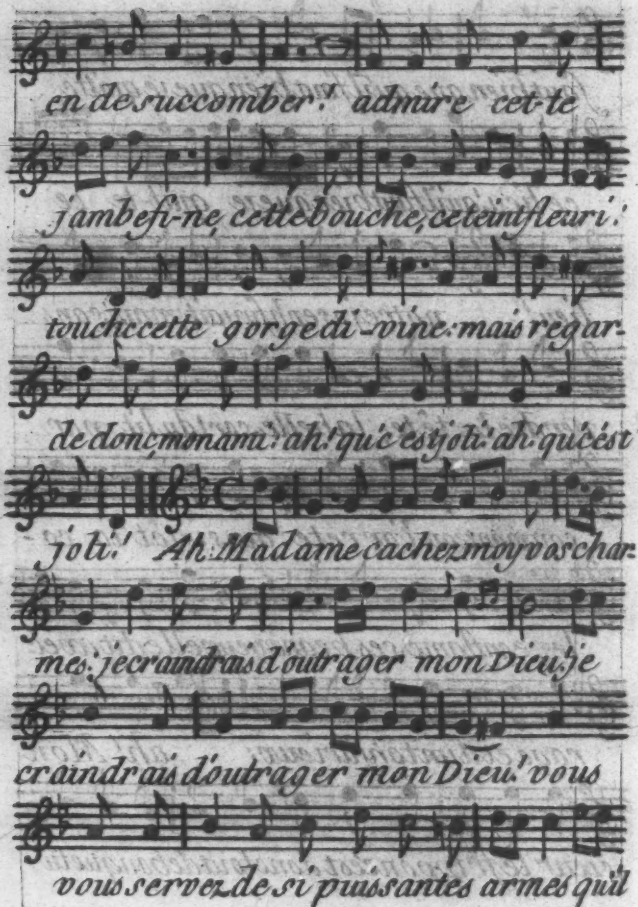 en de succomber! admire cet-te
jambe fi-ne, cette bouche, ce teint fleuri!
touche cette gorge di-vine: mais regar-
de donc, mon ami: ah! qu'c'est joli! ah! qu'c'est
joli! Ah! Madame cachez moy vos char-
mes; je craindrais d'outrager mon Dieu! je
craindrais d'outrager mon Dieu! vous
vous servez de si puissantes armes qu'il